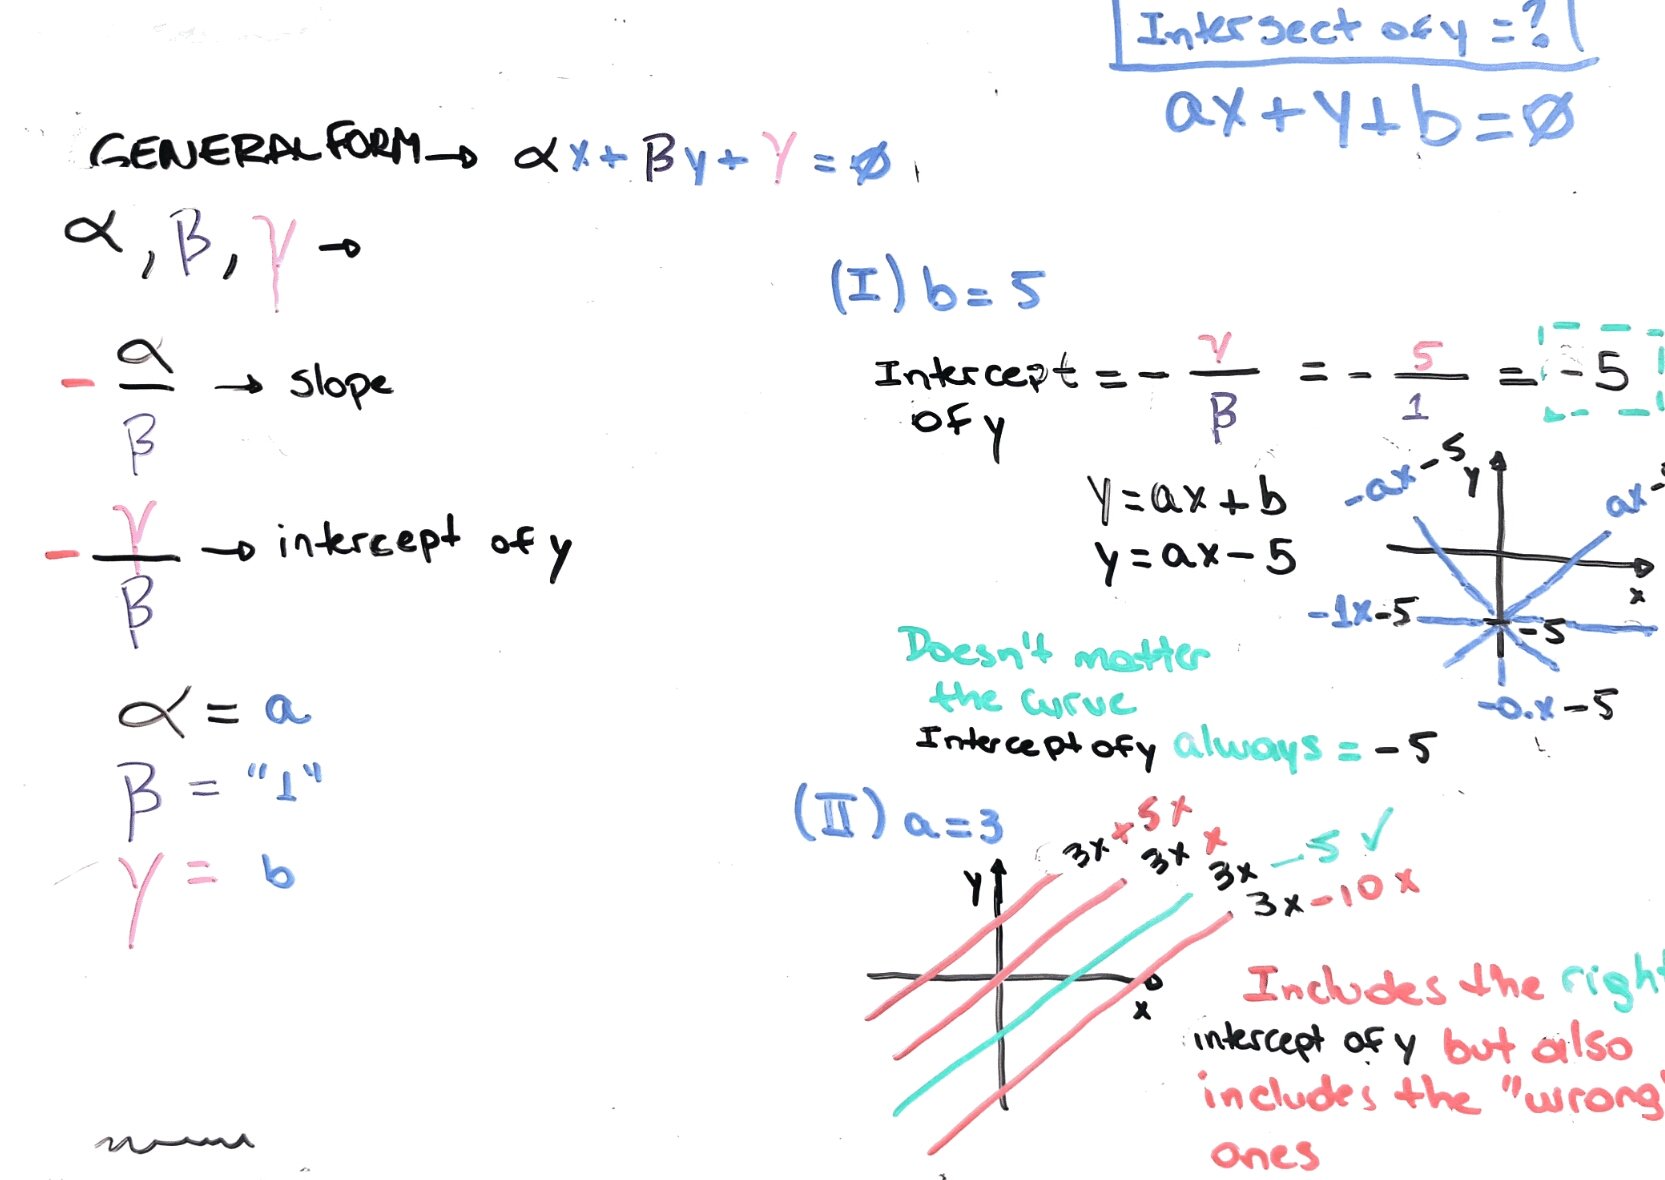 Intersect of y = ?
ax + y + b = Ø
GENERAL FORM → αx + βy + γ = Ø
α, β, γ →
- α/β → slope
- γ/β → intercept of y
α = a
β = "1"
γ = b
(I) b = 5
Intercept of y = - γ/β = - 5/1 = -5
y = ax + b
y = ax - 5
-ax - 5
y
ax -
x
-1x - 5
-5
-0.x - 5
Doesn't matter
the curve
Intercept of y always = -5
(II) a = 3
3x + 5 x
3x x
3x - 5 ✓
3x - 10 x
y
x
Includes the right
intercept of y but also
includes the "wrong"
ones